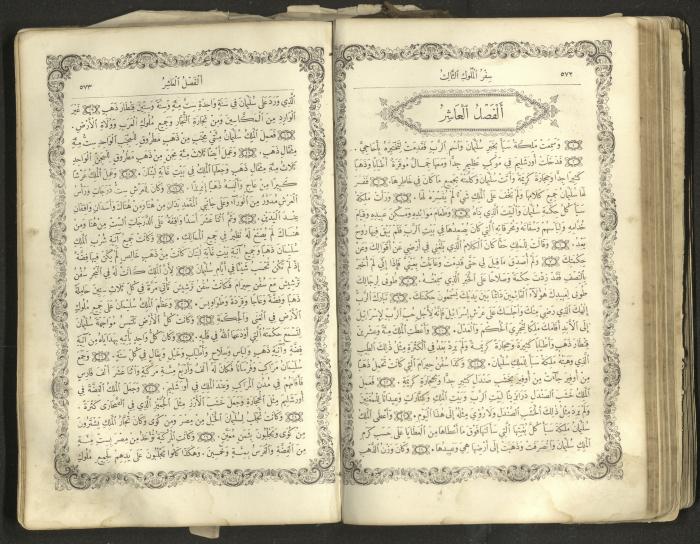 ٥٧٢
سِفْرُ الْمُلُوكِ الثَّالِثُ
أَلْفَصْلُ الْعَاشِرُ
وَسَمِعَتْ مَلِكَةُ سَبَأَ بِخَبَرِ سُلَيْمَانَ وَٱسْمِ ٱلرَّبِّ فَقَدِمَتْ لِتَخْتَبِرَهُ بِأَحَاجِيَّ
فَدَخَلَتْ أُورَشَلِيمَ فِي مَوْكِبٍ عَظِيمٍ جِدًّا وَمَعَهَا جِمَالٌ مُوقَرَةٌ أَطْيَابًا وَذَهَبًا
كَثِيرًا جِدًّا وَحِجَارَةً كَرِيمَةً وَأَتَتْ سُلَيْمَانَ وَكَلَّمَتْهُ بِجَمِيعِ مَا كَانَ فِي خَاطِرِهَا فَفَسَّرَ
لَهَا سُلَيْمَانُ جَمِيعَ كَلَامِهَا وَلَمْ يَخْفَ عَلَى الْمَلِكِ شَيْءٌ لَمْ يُفَسِّرْهُ لَهَا وَرَأَتْ مَلِكَةُ
سَبَأَ كُلَّ حِكْمَةِ سُلَيْمَانَ وَالْبَيْتَ الَّذِي بَنَاهُ وَطَعَامَ مَوَائِدِهِ وَمَسْكَنَ عَبِيدِهِ وَقِيَامَ
خُدَّامِهِ وَلِبَاسَهُمْ وَسُقَاتَهُ وَمُحْرَقَاتِهِ الَّتِي كَانَ يُصْعِدُهَا فِي بَيْتِ الرَّبِّ فَلَمْ يَبْقَ فِيهَا رُوحٌ
بَعْدُ وَقَالَتْ لِلْمَلِكِ حَقًّا كَانَ الْكَلَامُ الَّذِي بَلَغَنِي فِي أَرْضِي عَنْ أَقْوَالِكَ وَعَنْ
حِكْمَتِكَ وَلَمْ أُصَدِّقْ مَا قِيلَ لِي حَتَّى قَدِمْتُ وَعَايَنْتُ بِعَيْنَيَّ فَإِذَا إِنِّي لَمْ أُخْبَرْ
بِالنِّصْفِ فَقَدْ زِدْتَ حِكْمَةً وَصَلَاحًا عَلَى الْخَبَرِ الَّذِي سَمِعْتُهُ طُوبَى لِرِجَالِكَ
طُوبَى لِعَبِيدِكَ هٰؤُلَاءِ الْقَائِمِينَ دَائِمًا بَيْنَ يَدَيْكَ يَسْمَعُونَ حِكْمَتَكَ تَبَارَكَ الرَّبُّ
إِلٰهُكَ الَّذِي رَضِيَ مِنْكَ وَأَجْلَسَكَ عَلَى عَرْشِ إِسْرَائِيلَ فَإِنَّهُ لِأَجْلِ حُبِّ الرَّبِّ لِإِسْرَائِيلَ
إِلَى الْأَبَدِ أَقَامَكَ مَلِكًا لِتُجْرِيَ الْحُكْمَ وَالْعَدْلَ وَأَعْطَتِ الْمَلِكَ مِئَةً وَعِشْرِينَ
قِنْطَارَ ذَهَبٍ وَأَطْيَابًا كَثِيرَةً وَحِجَارَةً كَرِيمَةً وَلَمْ يَرِدْ بَعْدُ فِي الْكَثْرَةِ مِثْلُ ذٰلِكَ الطِّيبِ
الَّذِي وَهَبَتْهُ مَلِكَةُ سَبَأَ لِلْمَلِكِ سُلَيْمَانَ وَكَذَا سُفُنُ حِيرَامَ الَّتِي كَانَتْ تَحْمِلُ ذَهَبًا
مِنْ أُوفِيرَ جَاءَتْ مِنْ أُوفِيرَ بِخَشَبِ صَنْدَلٍ كَثِيرٍ جِدًّا وَبِحِجَارَةٍ كَرِيمَةٍ فَعَمِلَ
الْمَلِكُ خَشَبَ الصَّنْدَلِ دَرَابْزِينًا لِبَيْتِ الرَّبِّ وَبَيْتِ الْمَلِكِ وَكِنَّارَاتٍ وَعِيدَانًا لِلْمُغَنِّينَ
وَلَمْ يَرِدْ مِثْلُ ذٰلِكَ الْخَشَبِ الصَّنْدَلِ وَلَا رُؤِيَ مِثْلُهُ إِلَى هٰذَا الْيَوْمِ وَأَعْطَى الْمَلِكُ
سُلَيْمَانُ مَلِكَةَ سَبَأَ كُلَّ بُغْيَتِهَا الَّتِي سَأَلَتْهَا فَوْقَ مَا أَعْطَاهَا مِنَ الْعَطَايَا عَلَى حَسَبِ كَرَمِ
الْمَلِكِ سُلَيْمَانَ وَٱنْصَرَفَتْ وَذَهَبَتْ إِلَى أَرْضِهَا هِيَ وَعَبِيدُهَا وَكَانَ وَزْنُ الذَّهَبِ
٥٧٣
أَلْفَصْلُ الْعَاشِرُ
الَّذِي وَرَدَ عَلَى سُلَيْمَانَ فِي سَنَةٍ وَاحِدَةٍ سِتَّ مِئَةٍ وَسِتَّةً وَسِتِّينَ قِنْطَارَ ذَهَبٍ غَيْرَ
الْوَارِدِ مِنَ الْمَكَّاسِينَ وَمِنْ تِجَارَةِ التُّجَّارِ وَجَمِيعِ مُلُوكِ الْعَرَبِ وَوُلَاةِ الْأَرْضِ
فَعَمِلَ الْمَلِكُ سُلَيْمَانُ مِئَتَيْ مِجْنَبٍ مِنْ ذَهَبٍ مَطْرُوقٍ لِلْمِجْنَبِ الْوَاحِدِ سِتُّ مِئَةِ
مِثْقَالِ ذَهَبٍ وَعَمِلَ أَيْضًا ثَلَاثَ مِئَةِ مِجَنٍّ مِنْ ذَهَبٍ مَطْرُوقٍ لِلْمِجَنِّ الْوَاحِدِ
ثَلَاثُ مِئَةِ مِثْقَالِ ذَهَبٍ وَجَعَلَهَا الْمَلِكُ فِي بَيْتِ غَابَةِ لُبْنَانَ وَعَمِلَ الْمَلِكُ عَرْشًا
كَبِيرًا مِنْ عَاجٍ وَأَلْبَسَهُ ذَهَبًا إِبْرِيزًا وَكَانَ لِلْعَرْشِ سِتُّ دَرَجَاتٍ وَرَأْسُ
الْعَرْشِ مُسْتَدِيرٌ مِنَ الْوَرَاءِ وَعَلَى جَانِبَيِ الْمَقْعَدِ يَدَانِ مِنْ هُنَا وَمِنْ هُنَاكَ وَأَسَدَانِ وَاقِفَانِ
عِنْدَ الْيَدَيْنِ وَثَمَّ ٱثْنَا عَشَرَ أَسَدًا وَاقِفَةً عَلَى الدَّرَجَاتِ السِّتِّ مِنْ هُنَا وَمِنْ
هُنَاكَ لَمْ يُصْنَعْ لَهُ نَظِيرٌ فِي جَمِيعِ الْمَمَالِكِ وَكَانَتْ جَمِيعُ آنِيَةِ شُرْبِ الْمَلِكِ
سُلَيْمَانَ ذَهَبًا وَجَمِيعُ آنِيَةِ بَيْتِ غَابَةِ لُبْنَانَ كَانَتْ مِنْ ذَهَبٍ خَالِصٍ لَمْ يَكُنْ فِيهَا فِضَّةٌ
إِذْ لَمْ تَكُنْ تُحْسَبُ شَيْئًا فِي أَيَّامِ سُلَيْمَانَ لِأَنَّ الْمَلِكَ كَانَتْ لَهُ فِي الْبَحْرِ سُفُنُ
تَرْشِيشَ مَعَ سُفُنِ حِيرَامَ فَكَانَتْ سُفُنُ تَرْشِيشَ تَأْتِي مَرَّةً فِي كُلِّ ثَلَاثِ سِنِينَ حَامِلَةً
ذَهَبًا وَفِضَّةً وَعَاجًا وَقِرَدَةً وَطَوَاوِيسَ وَعَظُمَ الْمَلِكُ سُلَيْمَانُ عَلَى جَمِيعِ مُلُوكِ
الْأَرْضِ فِي الْغِنَى وَالْحِكْمَةِ وَكَانَتْ كُلُّ الْأَرْضِ تَلْتَمِسُ مُوَاجَهَةَ سُلَيْمَانَ
لِتَسْمَعَ حِكْمَتَهُ الَّتِي أَوْدَعَهَا اللهُ فِي قَلْبِهِ وَكَانَ كُلُّ وَاحِدٍ يَأْتِيهِ بِهَدَايَاهُ مِنْ آنِيَةِ
فِضَّةٍ وَآنِيَةِ ذَهَبٍ وَلِبَاسٍ وَسِلَاحٍ وَأَطْيَابٍ وَخَيْلٍ وَبِغَالٍ فِي كُلِّ سَنَةٍ وَجَمَعَ
سُلَيْمَانُ مَرَاكِبَ وَفُرْسَانًا فَكَانَ لَهُ أَلْفٌ وَأَرْبَعُ مِئَةِ مَرْكَبَةٍ وَٱثْنَا عَشَرَ أَلْفَ فَارِسٍ
فَأَقَامَهُمْ فِي مُدُنِ الْمَرَاكِبِ وَعِنْدَ الْمَلِكِ فِي أُورَشَلِيمَ وَجَعَلَ الْمَلِكُ الْفِضَّةَ فِي
أُورَشَلِيمَ مِثْلَ الْحِجَارَةِ وَجَعَلَ خَشَبَ الْأَرْزِ مِثْلَ الْجُمَّيْزِ الَّذِي فِي الصَّحَارَى كَثْرَةً
وَكَانَتْ تُجْلَبُ لِسُلَيْمَانَ الْخَيْلُ مِنْ مِصْرَ وَمِنْ كُوَى وَكَانَ تُجَّارُ الْمَلِكِ يَشْتَرُونَ
مِنْ كُوَى وَيَجْلِبُونَ بِثَمَنٍ مُعَيَّنٍ وَكَانَتِ الْمَرْكَبَةُ تُؤْخَذُ مِنْ مِصْرَ بِسِتِّ مِئَةٍ
مِنَ الْفِضَّةِ وَالْفَرَسُ بِمِئَةٍ وَخَمْسِينَ وَهٰكَذَا كَانُوا يَجْلِبُونَ عَلَى يَدِهِمْ لِجَمِيعِ مُلُوكِ